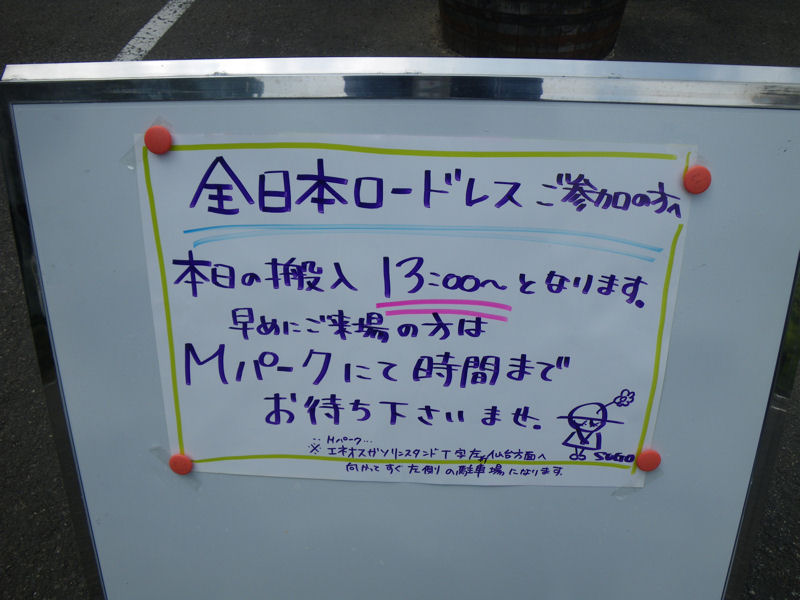 全日本ロードレス ご参加の方へ
本日の搬入 13:00〜 となります。
早めにご来場の方は
Mパークにて時間まで
お待ち下さいませ。
Mパーク…
※ エネオスガソリンスタンドT字左が仙台方面へ
向かってすぐ左側の駐車場になります。
SUGO